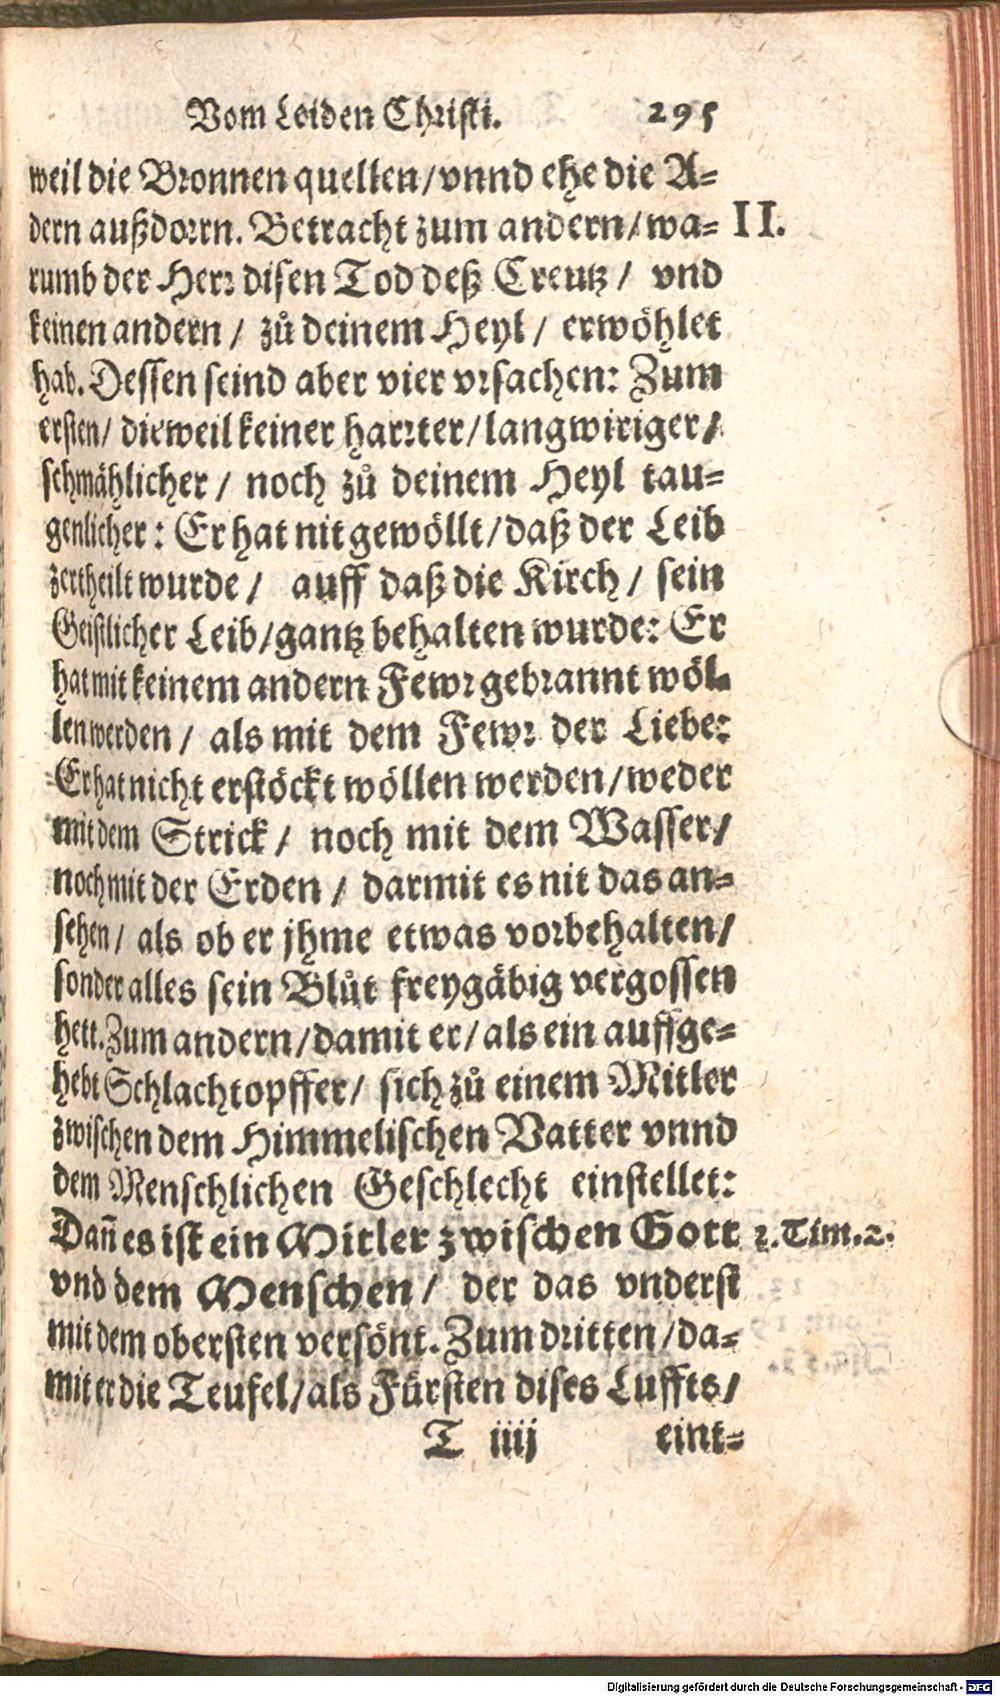 Vom Leiden Christi. 295
weil die Bronnen quellen/ vnnd ehe die A-
dern außdorrn. Betracht zum andern/ wa- II.
rumb der Herr disen Tod deß Creutz/ vnd
keinen andern/ zů deinem Heyl/ erwöhlet
hab. Dessen seind aber vier vrsachen: Zum
ersten/ dieweil keiner harrter/ langwiriger/
schmählicher/ noch zů deinem Heyl tau-
genlicher: Er hat nit gewöllt/ daß der Leib
zertheilt wurde/ auff daß die Kirch/ sein
Geistlicher Leib/ gantz behalten wurde: Er
hat mit keinem andern Fewr gebrannt wöl-
len werden/ als mit dem Fewr der Liebe:
Er hat nicht erstöckt wöllen werden/ weder
mit dem Strick/ noch mit dem Wasser/
noch mit der Erden/ darmit es nit das an-
sehen/ als ob er jhme etwas vorbehalten/
sonder alles sein Blůt freygäbig vergossen
hett. Zum andern/ damit er/ als ein auffge-
hebt Schlachtopffer/ sich zů einem Mitler
zwischen dem Himmelischen Vatter vnnd
dem Menschlichen Geschlecht einstellet:
Dañ es ist ein Mitler zwischen Gott 2. Tim. 2.
vnd dem Menschen/ der das vnderst
mit dem obersten versönt. Zum dritten/ da-
mit er die Teufel/ als Fürsten dises Luffts/
T iiij eint-
Digitalisierung gefördert durch die Deutsche Forschungsgemeinschaft - DFG